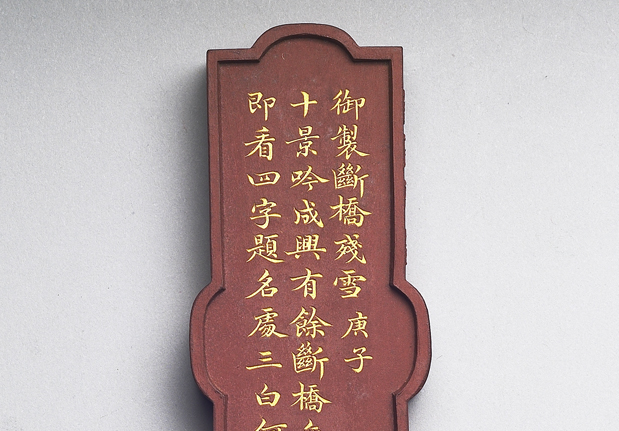 御製斷橋殘雪 庚子
十景吟成興有餘斷橋
即看四字題名處三白何